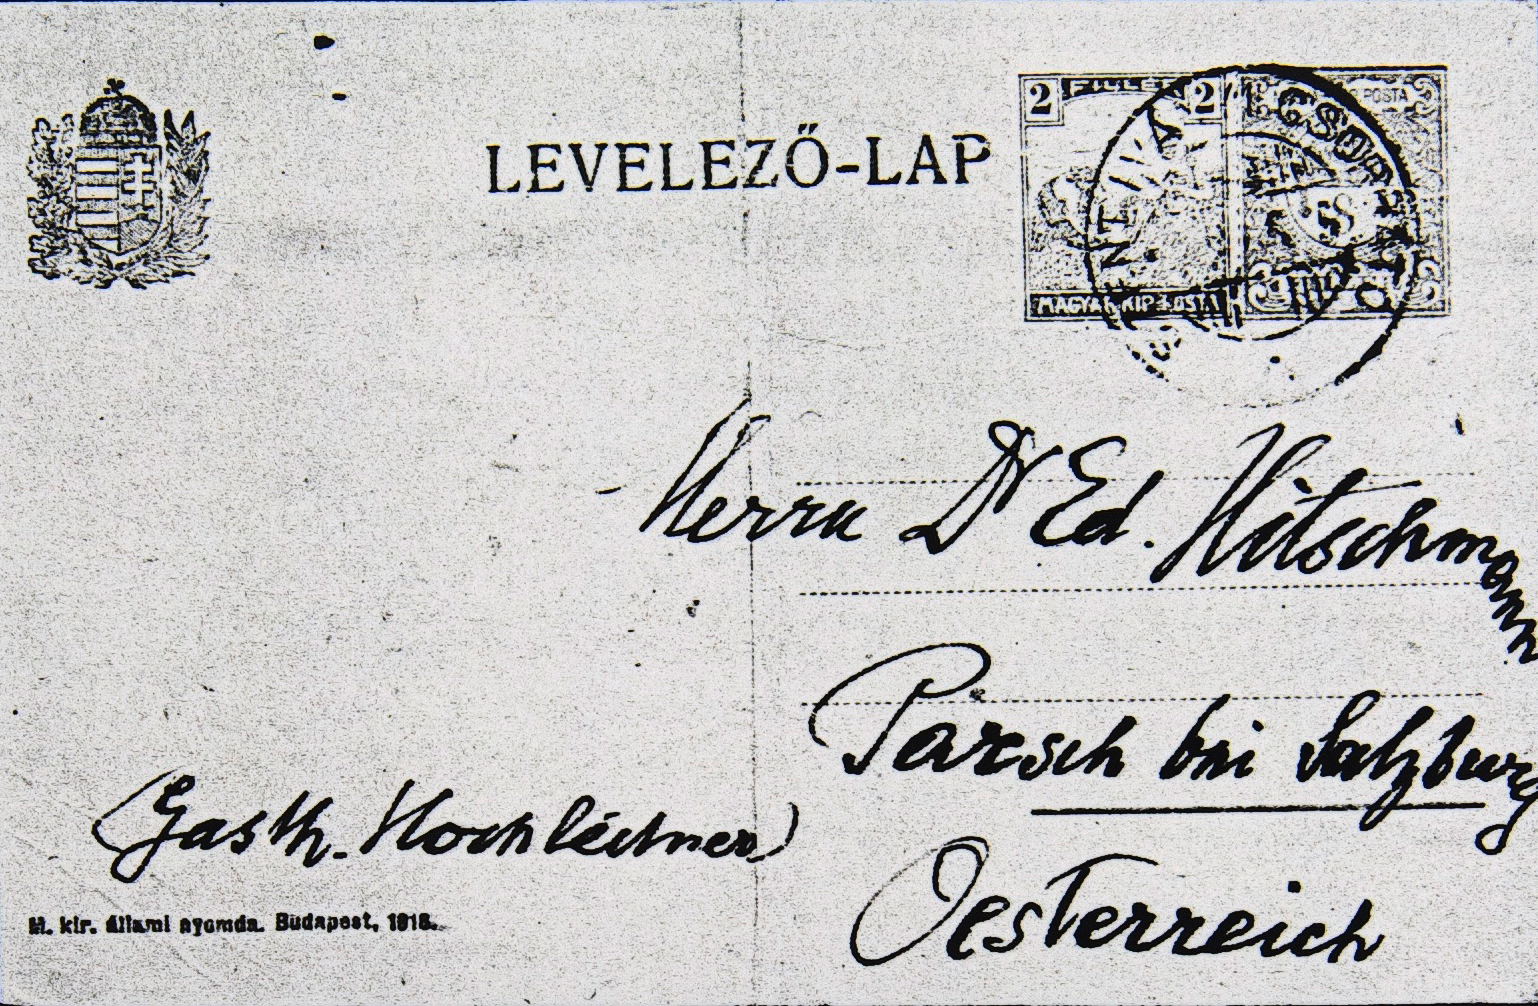 LEVELEZŐ-LAP
2 FILLÉR 2
POSTA
MAGYAR KIR POSTA
Herrn Dr Ed. Hitschmann
Parsch bei Salzburg
(Gasth. Hochleitner)
Oesterreich
M. kir. állami nyomda. Budapest, 1918.